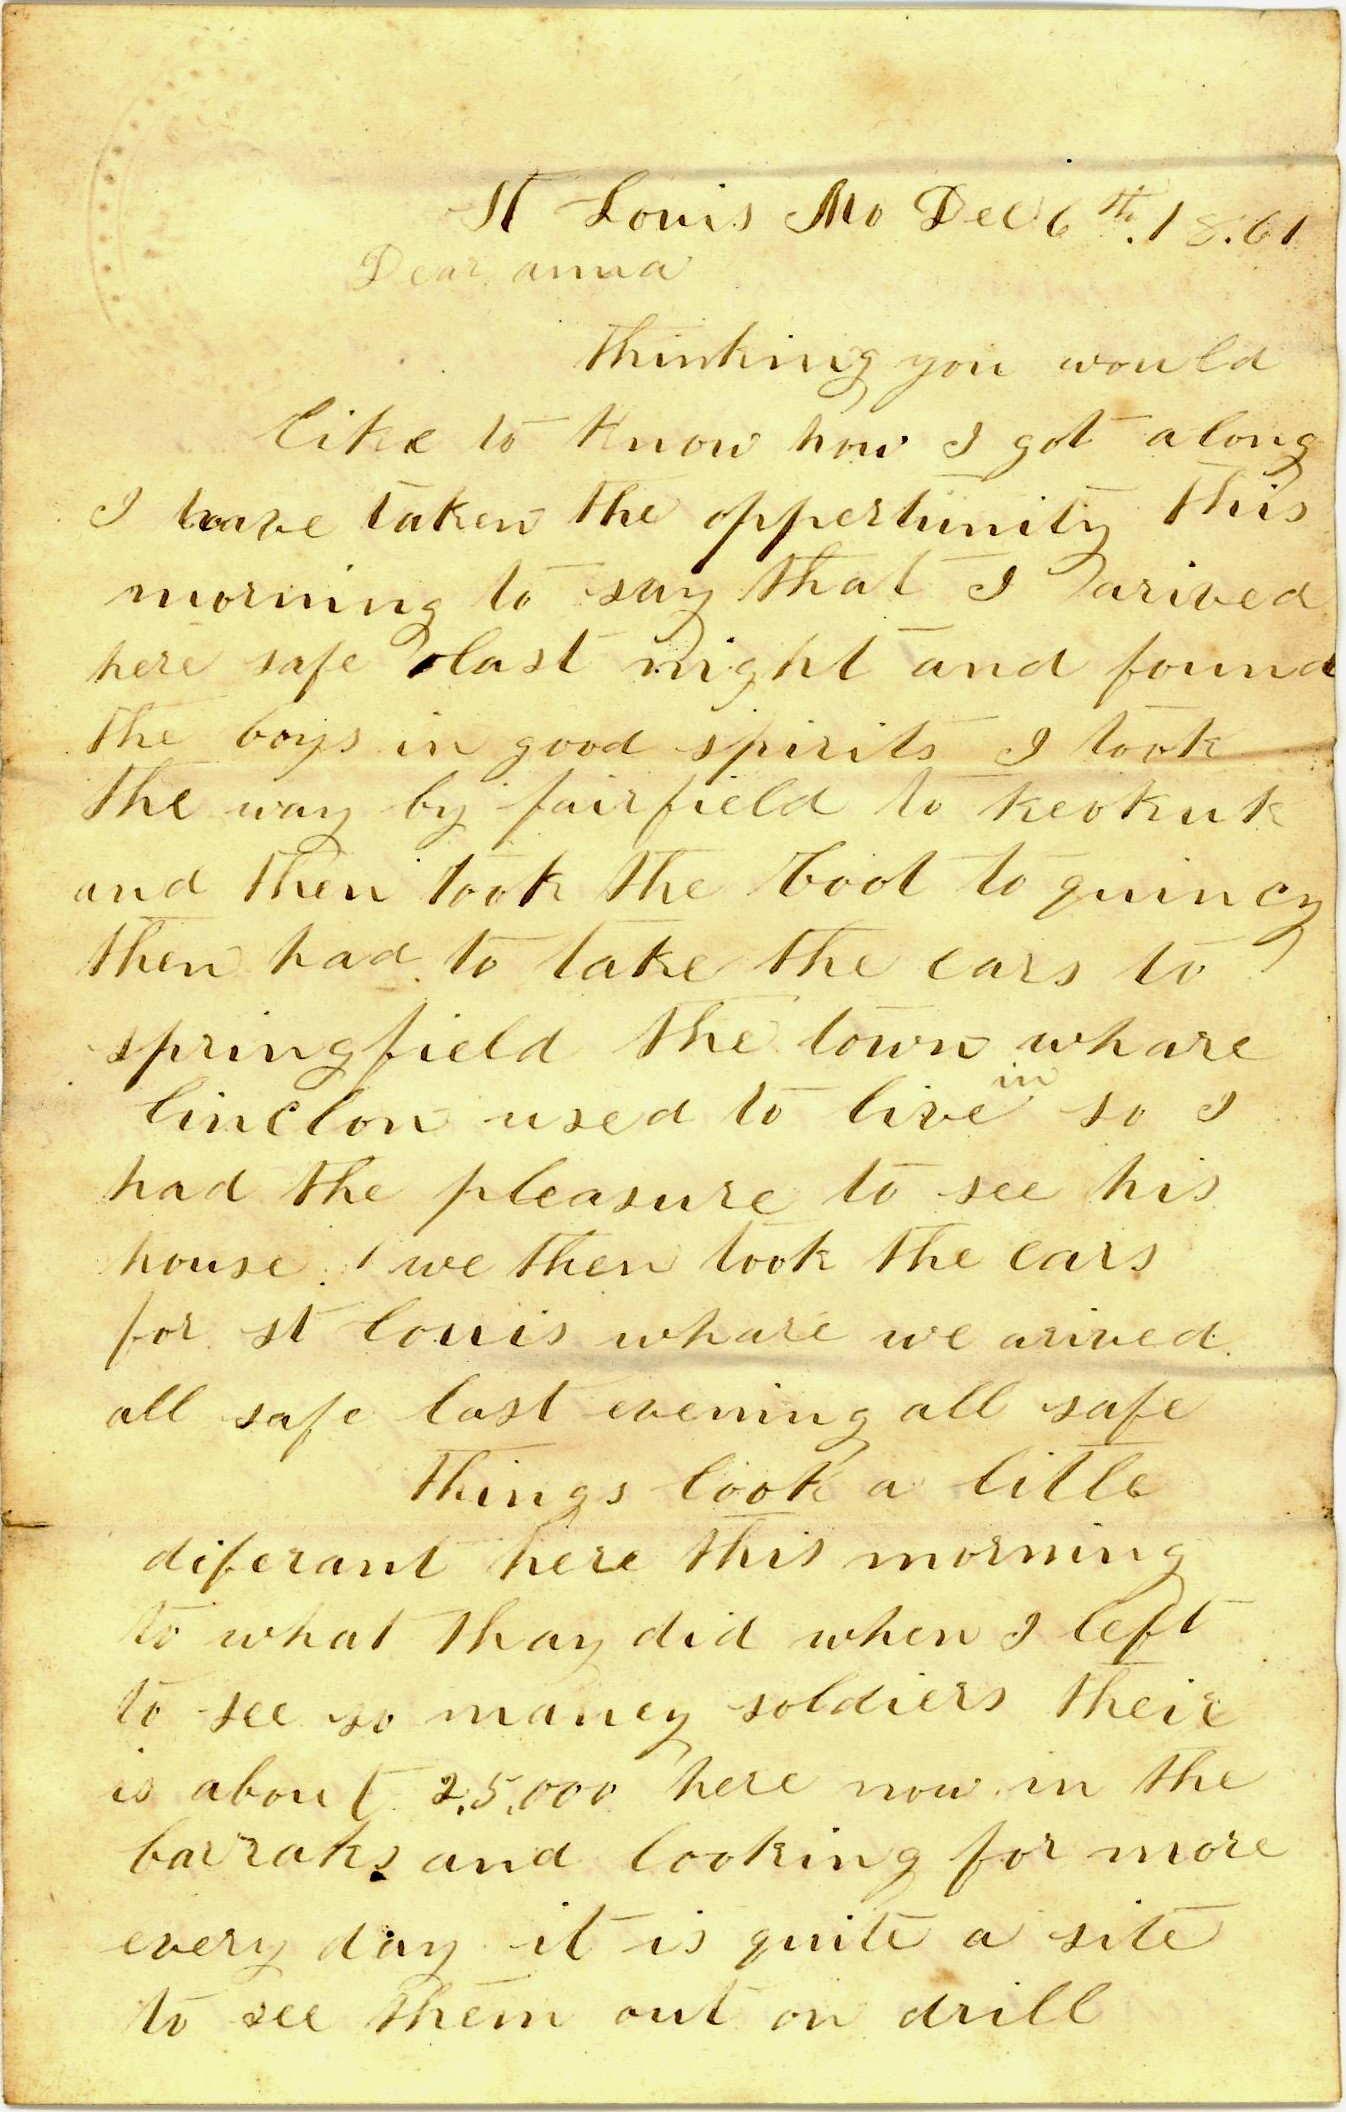 St Louis Mo Dec 6th. 18.61
Dear anna
thinking you would
like to know how I got along
I have taken the oppertunity this
morning to say that I arived
here safe last night and found
the boys in good spirits I took
the way by fairfield to keokuk
and then took the boot to quincy
then had to take the cars to
springfield the town whare
linclon used to live in so I
had the pleasure to see his
house. we then took the cars
for st louis whare we arived
all safe last evening all safe
things look a little
diferant here this morning
to what thay did when I left
to see so maney soldiers their
is about 25,000 here now in the
barraks and looking for more
every day it is quite a site
to see them out on drill